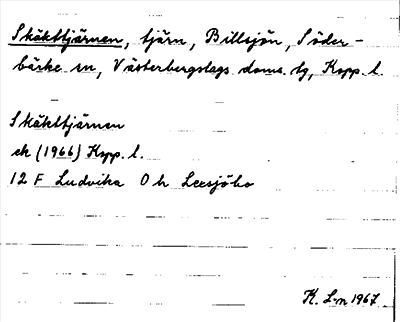 Skäkttjärnen, tjärn, Billsjön, Söder-
bärke sn, Västerbergslags doms. tg, Kopp. l.
Skäkttjärnen
ek (1966) Kopp. l.
12 F Ludvika 0 h Leesjöbo
K. L-m 1967